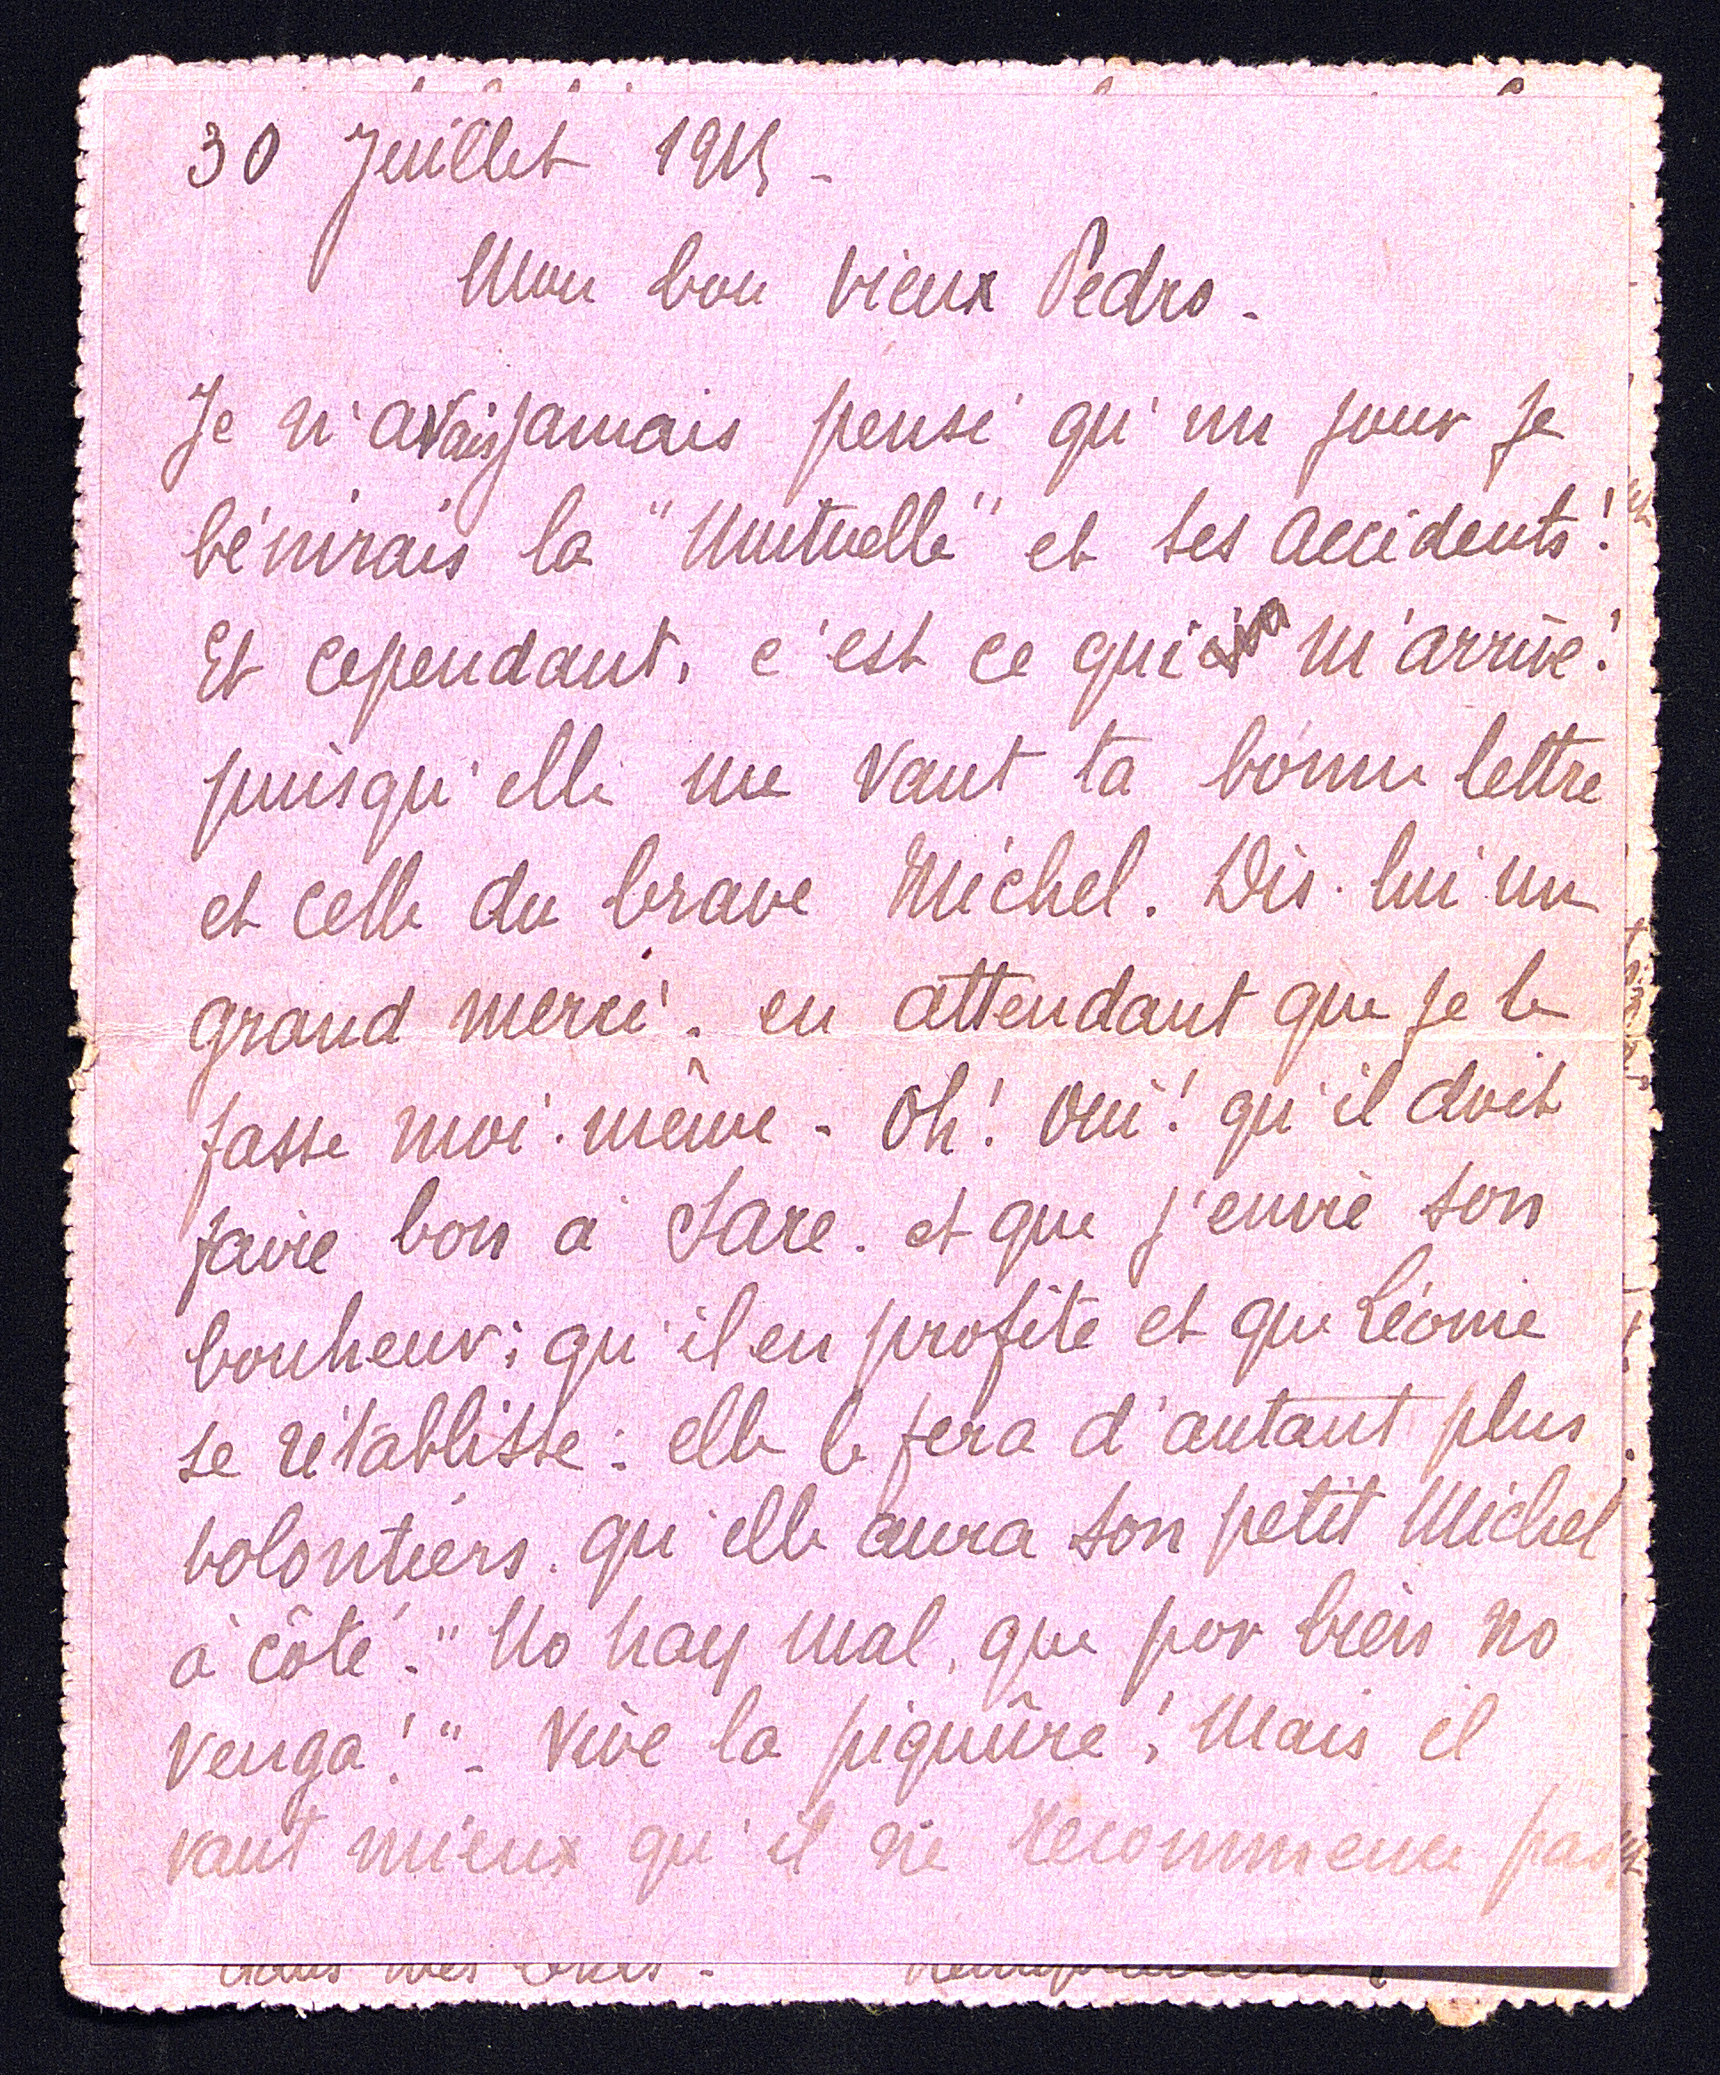 30 Juillet 1915 -
Mon bon vieux Pedro -
Je n'avais jamais pensé qu'un jour je
bénirais la "Mutuelle" et ses accidents!
Et cependant, c'est ce qui m'arrive!
puisqu'elle me vaut ta bonne lettre
et celle du brave Michel. Dis-lui un
grand merci - en attendant que je le
fasse moi-même - Oh! Oui! qu'il doit
faire bon à Sare - et que j'envie son
bonheur; qu'il en profite et que Léonie
se rétablisse: elle le fera d'autant plus
volontiers qu'elle aura son petit Michel
à côté. "No hay mal, que por bien no
venga!" - Vive la piquûre! Mais il
vaut mieux qu'il ne recommence pas
dans mes bras -